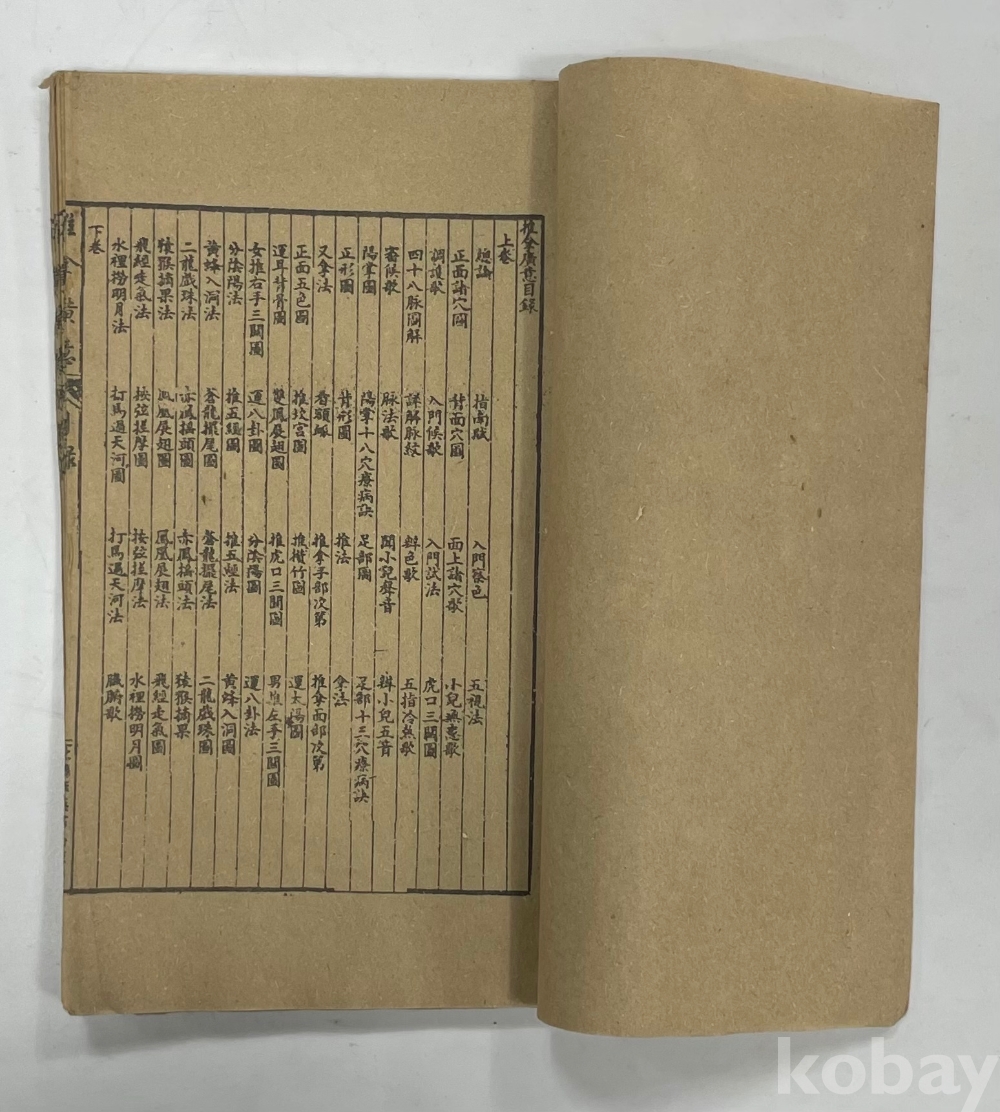 推拿廣意目録
上卷
總論　指南賦　入門察色　五視法
正面諸穴圖　背面穴圖　面上諸穴歌　小兒無患歌
調護歌　入門候歌　入門試法　虎口三關圖
四十八脉圖解　詳解脉紋　辨色歌　五指冷熱歌
審候歌　脉法歌　聞小兒聲音　辨小兒五音
陽掌圖　陽掌十八穴療病訣　足部圖　足部十三穴療病訣
正形圖　背形圖　推法　拿法
又拿法　看額脉　推拿手部次第　推拿面部次第
正面五色圖　推坎宮圖　推攢竹圖　運太陽圖
運耳背骨圖　雙鳳展翅圖　推虎口三關圖　男推左手三關圖
女推右手三關圖　運八卦圖　分陰陽圖　運八卦法
分陰陽法　推五經圖　推五經法　黃蜂入洞圖
黃蜂入洞法　蒼龍擺尾圖　蒼龍擺尾法　二龍戲珠圖
二龍戲珠法　赤鳳搖頭圖　赤鳳搖頭法　猿猴摘果
猿猴摘果法　鳳凰展翅圖　鳳凰展翅法　飛經走氣圖
飛經走氣法　按弦搓摩圖　按弦搓摩法　水裡撈明月圖
水裡撈明月法　打馬過天河圖　打馬過天河法　臟腑歌
下卷
推拿廣意　目録
kobay